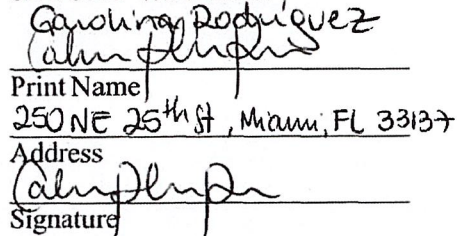 Carolina Rodriguez
Print Name
250 NE 25th St, Miami, FL 33137
Address
Signature